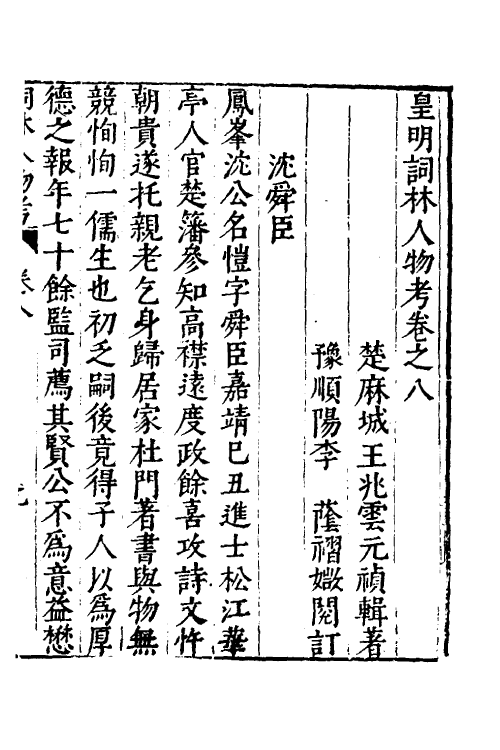 皇明詞林人物考卷之八
楚麻城王兆雲元禎輯著
豫順陽李　蔭襑媺閱訂
沈舜臣
鳳峯沈公名愷字舜臣嘉靖己丑進士松江華
亭人官楚籓參知高襟遠度政餘喜攻詩文忤
朝貴遂托親老乞身歸居家杜門著書與物無
競恂恂一儒生也初乏嗣後竟得子人以為厚
德之報年七十餘監司薦其賢公不為意益懋
詞林人物考　卷八